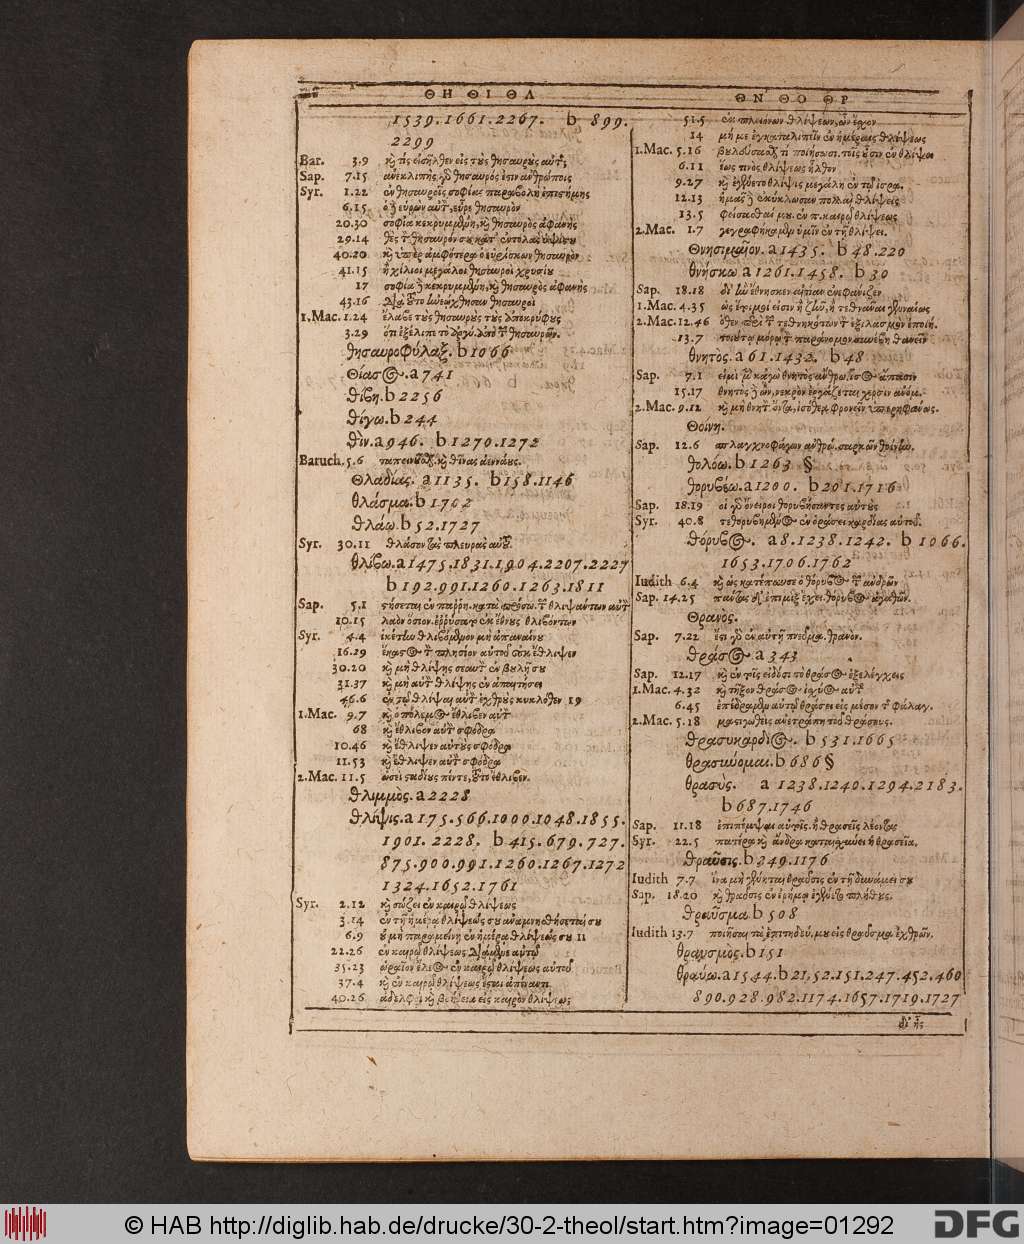 ΘΗ ΘΙ ΘΛ
1539.1661.2267. b 899.
2299
Bar. 3.9 καὶ τίς εἰσῆλθεν εἰς τοὺς θησαυροὺς αὐτῆς;
Sap. 7.15 ἀνεκλιπὴς γὰρ θησαυρός ἐστιν ἀνθρώποις
Syr. 1.22 ἐν θησαυροῖς σοφίας παραβολὴ ἐπιστήμης
6.15 ὁ δὲ εὑρὼν αὐτὸν, εὗρε θησαυρὸν
20.30 σοφία κεκρυμμένη, καὶ θησαυρὸς ἀφανὴς
29.14 θὲς τὸν θησαυρόν σου κατ' ἐντολὰς ὑψίστου
40.20 καὶ ὑπὲρ ἀμφότερα ὁ εὑρίσκων θησαυρὸν
41.15 ἢ χίλιοι μεγάλοι θησαυροὶ χρυσίου
17 σοφία δὲ κεκρυμμένη, καὶ θησαυρὸς ἀφανὴς
43.16 διὰ τοῦτο ἠνεῴχθησαν θησαυροὶ
1.Mac. 1.24 ἔλαβε τοὺς θησαυροὺς τοὺς ἀποκρύφους
3.29 ὅτι ἐξέλιπε τὸ ἀργύ. ἀπὸ τῶν θησαυρῶν.
θησαυροφύλαξ. b 1066
Θίασος. a 741
θίβη. b 2256
θίγω. b 244
θὶν. a 946. b 1270.1272
Baruch. 5.6 ταπεινοῦσθαι καὶ θῖνας ἀεννάους.
Θλαδίας. a 1135. b 158.1146
θλάσμα. b 1702
θλάω. b 52.1727
Syr. 30.11 θλάσον τὰς πλευρὰς αὐτοῦ.
θλίβω. a 1475.1831.1904.2207.2227
b 192.991.1260.1263.1811
Sap. 5.1 στήσεται ἐν παρρη. κατὰ πρόσω. τῶν θλιψάντων αὐτὸν
10.15 λαὸν ὅσιον. ἐρρύσατο ἐκ ἔθνους θλιβόντων
Syr. 4.4 ἱκέτην θλιβόμενον μὴ ἀπαναίνου
16.29 ἕκαστος τὸν πλησίον αὐτοῦ οὐκ ἔθλιψεν
30.20 καὶ μὴ θλίψῃς σεαυτὸν ἐν βουλῇ σου
31.37 καὶ μὴ αὐτὸν θλίψῃς ἐν ἀπαιτήσει
46.6 ἐν τῷ θλίψαι αὐτὸν ἐχθροὺς κυκλόθεν 19
1.Mac. 9.7 καὶ ὁ πόλεμος ἔθλιβεν αὐτὸν
68 καὶ ἔθλιβον αὐτὸν σφόδρα
10.46 καὶ ἔθλιψεν αὐτοὺς σφόδρα
11.53 καὶ ἔθλιψεν αὐτὸν σφόδρα
2.Mac. 11.5 ὡσεὶ σταδίους πέντε, τοῦτο ἔθλιβεν.
θλιμμὸς. a 2228
θλίψις. a 175.566.1000.1048.1855.
1901.2228. b 415.679.727.
875.900.991.1260.1267.1272
1324.1652.1761
Syr. 2.12 καὶ σώζει ἐν καιρῷ θλίψεως
3.14 ἐν τῇ ἡμέρᾳ θλίψεώς σου ἀναμνησθήσεταί σου
6.9 οὐ μὴ παραμείνῃ ἐν ἡμέρᾳ θλίψεώς σου 11
22.26 ἐν καιρῷ θλίψεως διάμενε αὐτῷ
35.23 ὡραῖον ἔλεος ἐν καιρῷ θλίψεως αὐτοῦ
37.4 καὶ ἐν καιρῷ θλίψεως ἔσται ἀπέναντι
40.26 ἀδελφοὶ καὶ βοήθεια εἰς καιρὸν θλίψεως
ΘΝ ΘΟ ΘΡ
51.5 ἐκ πλειόνων θλίψεων, ὧν ἔσχον
14 μή με ἐγκαταλιπεῖν ἐν ἡμέραις θλίψεως
1.Mac. 5.16 βουλεύσασθαι τί ποιήσωσι τοῖς οὖσιν ἐν θλίψει
6.11 ἕως τίνος θλίψεως ἦλθον
9.27 καὶ ἐγένετο θλίψις μεγάλη ἐν τῷ ἰσρα.
12.13 ἡμᾶς δὲ ἐκύκλωσαν πολλαὶ θλίψεις
13.5 φείσασθαί μου ἐν π. καιρῷ θλίψεως
2.Mac. 1.7 γεγραφήκαμεν ὑμῖν ἐν τῇ θλίψει.
Θνησιμαῖον. a 1435. b 48.220
θνήσκω a 1261.1458. b 30
Sap. 18.18 δι' ἣν ἔθνησκεν αἰτίαν ἐνεφάνιζεν
1.Mac. 4.35 ὡς ἕτοιμοί εἰσιν ἢ ζῆν, ἢ τεθνάναι γενναίως
2.Mac. 12.46 ὅθεν περὶ τῶν τεθνηκότων τὸν ἐξιλασμὸν ἐποίη.
13.7 τοιούτῳ μόρῳ τὸν παράνομον συνέβη θανεῖν
θνητὸς. a 61.1432. b 48
Sap. 7.1 εἰμὶ μὲν κἀγὼ θνητὸς ἄνθρω. ἴσος ἅπασιν
15.17 θνητὸς δὲ ὢν, νεκρὸν ἐργάζεται χερσὶν ἀνόμ.
2.Mac. 9.12 καὶ μὴ θνητὸν ὄντα, ἰσόθεα φρονεῖν ὑπερηφάνως.
Θοίνη.
Sap. 12.6 σπλαγχνοφάγων ἀνθρω. σαρκῶν θοίναν.
θολόω. b 1263 §
θορυβέω. a 1200. b 201.1716
Sap. 18.19 οἱ γὰρ ὄνειροι θορυβήσαντες αὐτοὺς
Syr. 40.8 τεθορυβημένος ἐν ὁράσει καρδίας αὐτοῦ.
θόρυβος. a 8.1238.1242. b 1066.
1653.1706.1762
Iudith 6.4 καὶ ὡς κατέπαυσε ὁ θόρυβος τῶν ἀνδρῶν
Sap. 14.25 πάντας δ' ἐπιμὶξ ἔχει. θόρυβος ἀγαθῶν.
Θρανὸς.
Sap. 7.22 ἔστι γὰρ ἐν αὐτῇ πνεῦμα. θρανὸν.
θράσος. a 343
Sap. 12.17 καὶ ἐν τοῖς εἰδόσι τὸ θράσος ἐξελέγχεις
1.Mac. 4.32 καὶ τῆξον θράσος ἰσχύος αὐτῶν
6.45 ἐπέδραμεν αὐτῷ θράσει εἰς μέσον τῆς φάλαγ.
2.Mac. 5.18 μαστιγωθεὶς ἀνετράπη τοῦ θράσους.
θρασυκάρδιος. b 531.1665
θρασύνομαι. b 686 §
θρασὺς. a 1238.1240.1294.2183.
b 687.1746
Sap. 11.18 ἐπιπέμψαι αὐτοῖς. ἢ θρασεῖς λέοντας
Syr. 22.5 πατέρα καὶ ἄνδρα καταισχύνει ἡ θρασεῖα.
θραῦσις. b 249.1176
Iudith 7.7 ἵνα μὴ γένηται θραῦσις ἐν τῇ δυνάμει σου
Sap. 18.20 καὶ θραῦσις ἐν ἐρήμῳ ἐγένετο πλήθους.
θραῦσμα. b 508
Iudith 13.7 ποιῆσαι τὰ ἐπιτηδεύ. μου εἰς θραῦσμα ἐχθρῶν.
θραυσμὸς. b 151
θραύω. a 1544. b 21.52.151.247.452.460
890.928.982.1174.1657.1719.1727
δι' ἧς
© HAB http://diglib.hab.de/drucke/30-2-theol/start.htm?image=01292
DFG